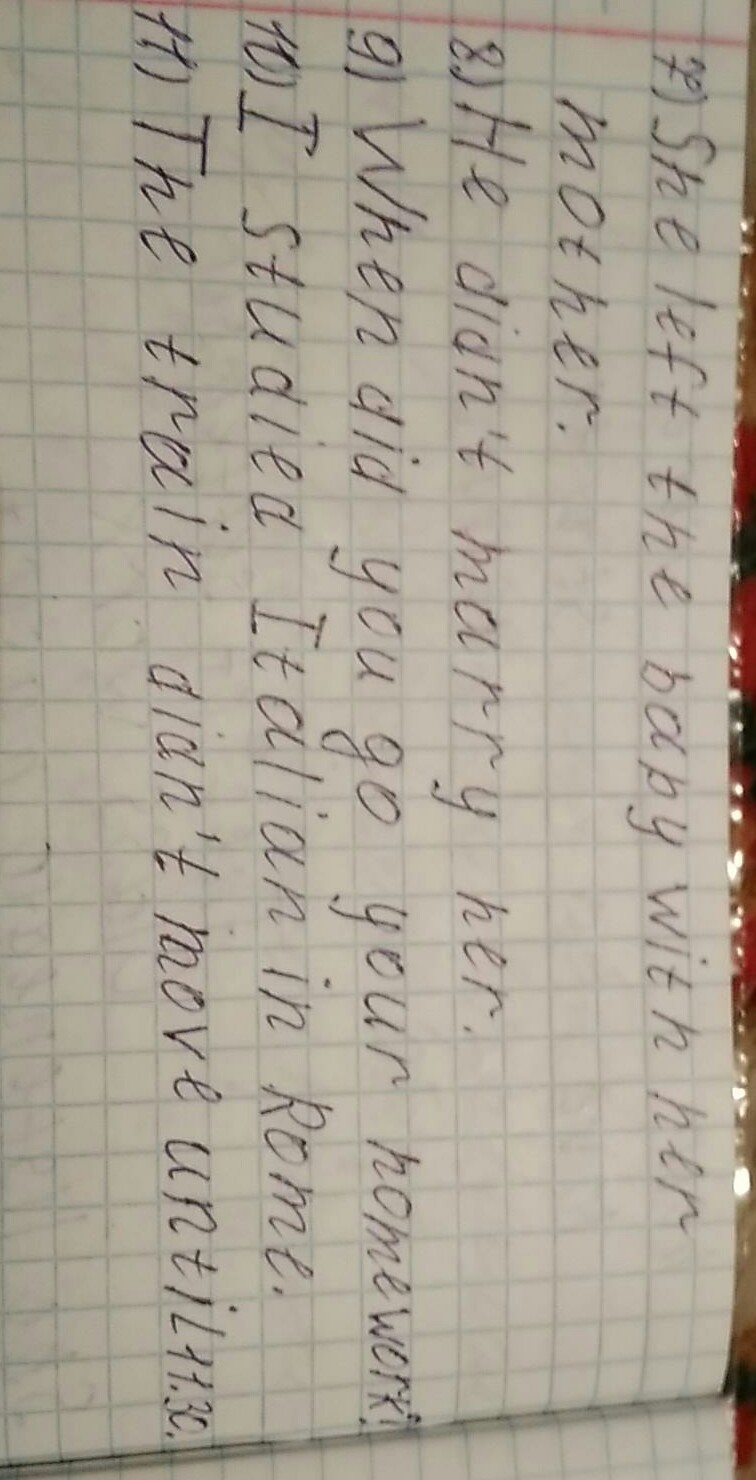 7) She left the baby with her
mother.
8) He didn't marry her.
9) When did you go your homework?
10) I studied Italian in Rome.
11) The train didn't move until 11.30.